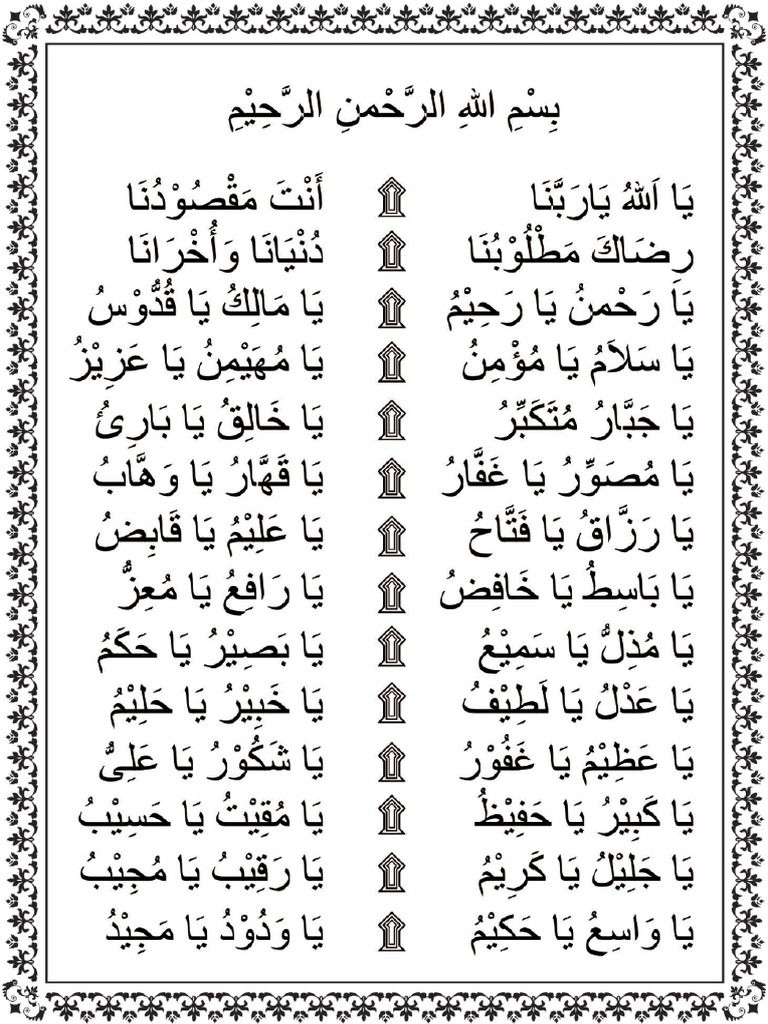 بِسْمِ اللهِ الرَّحْمنِ الرَّحِيْمِ
يَا اَللهُ يَارَبَّنَا ۩ أَنْتَ مَقْصُوْدُنَا
رِضَاكَ مَطْلُوْبُنَا ۩ دُنْيَانَا وَأُخْرَانَا
يَا رَحْمنُ يَا رَحِيْمُ ۩ يَا مَالِكُ يَا قُدُّوْسُ
يَا سَلاَمُ يَا مُؤْمِنُ ۩ يَا مُهَيْمِنُ يَا عَزِيْزُ
يَا جَبَّارُ مُتَكَبِّرُ ۩ يَا خَالِقُ يَا بَارِئُ
يَا مُصَوِّرُ يَا غَفَّارُ ۩ يَا قَهَّارُ يَا وَهَّابُ
يَا رَزَّاقُ يَا فَتَّاحُ ۩ يَا عَلِيْمُ يَا قَابِضُ
يَا بَاسِطُ يَا خَافِضُ ۩ يَا رَافِعُ يَا مُعِزُّ
يَا مُذِلُّ يَا سَمِيْعُ ۩ يَا بَصِيْرُ يَا حَكَمُ
يَا عَدْلُ يَا لَطِيْفُ ۩ يَا خَبِيْرُ يَا حَلِيْمُ
يَا عَظِيْمُ يَا غَفُوْرُ ۩ يَا شَكُوْرُ يَا عَلِىُّ
يَا كَبِيْرُ يَا حَفِيْظُ ۩ يَا مُقِيْتُ يَا حَسِيْبُ
يَا جَلِيْلُ يَا كَرِيْمُ ۩ يَا رَقِيْبُ يَا مُجِيْبُ
يَا وَاسِعُ يَا حَكِيْمُ ۩ يَا وَدُوْدُ يَا مَجِيْدُ